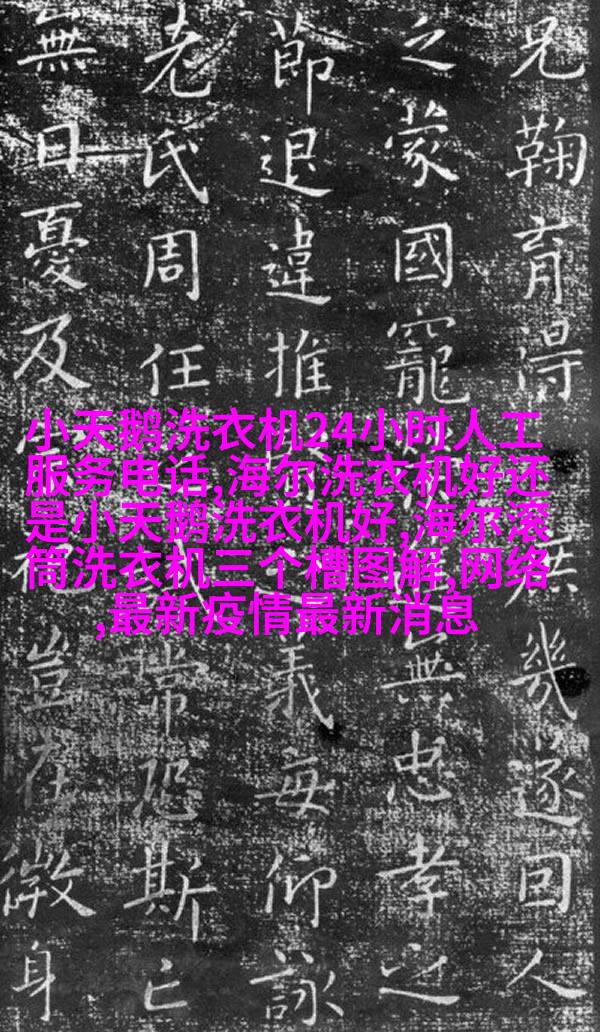 兄鞠育得疾幾遂回人
之蒙國寵無忠孝之
節退違推義每仰詠
老氏周任常恐斯亡
無日憂及豈在微身
小天鹅洗衣机24小时人工
服务电话,海尔洗衣机好还
是小天鹅洗衣机好,海尔滚
筒洗衣机三个槽图解,网络
,最新疫情最新消息